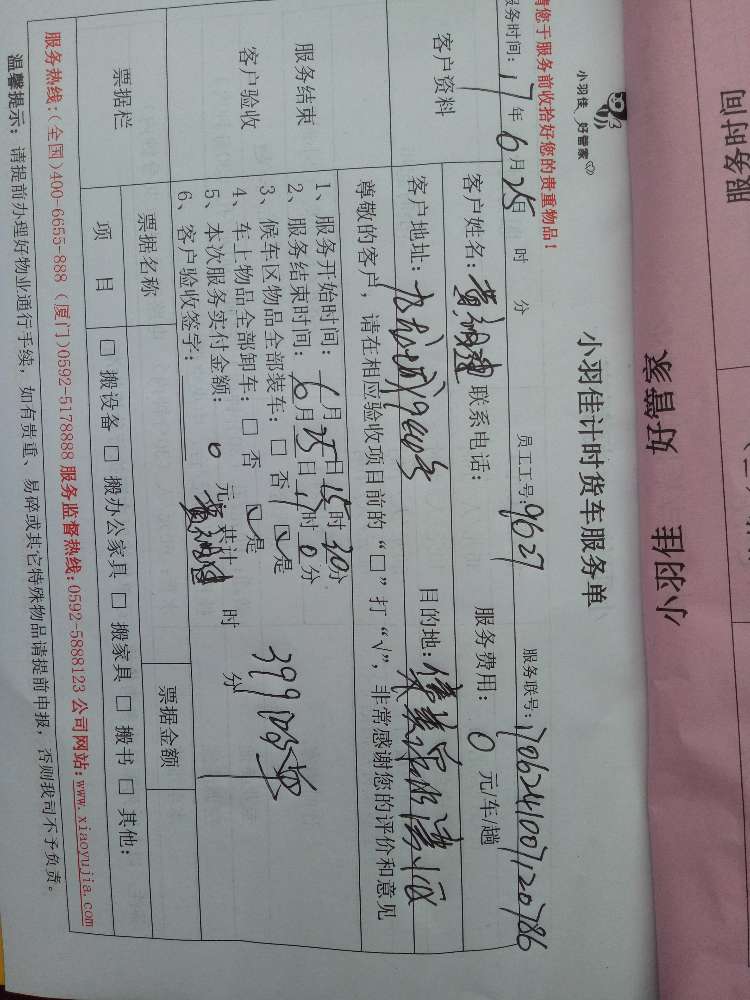 服务时间
小羽佳 好管家
小羽佳 好管家
小羽佳计时货车服务单
请您于服务前收拾好您的贵重物品!
服务时间: 17年6月25日 时 分 员工工号: 9627 服务联号: 1706241007120786
客户资料
客户姓名: 联系电话: 服务费用: 0 元/车/趟
客户地址: 目的地:
尊敬的客户，请在相应验收项目前的“□”打“√”，非常感谢您的评价和意见
服务结束
客户验收
1、服务开始时间: 6月25日15时30分
2、服务结束时间: 6月25日17时0分
3、候车区物品全部装车: □ 否 ☑是
4、车上物品全部卸车: □ 否 ☑是
5、本次服务实付金额: 0 元; 共计 时 分
6、客户验收签字:
399
票据栏 票据名称 票据金额
项 目 □ 搬设备 □ 搬办公家具 □ 搬家具 □ 搬书 □ 其他:
服务热线:(全国)400-6655-888 (厦门)0592-5178888 服务监督热线:0592-5888123 公司网站:www.xiaoyujia.com
温馨提示: 请提前办理好物业通行手续，如有贵重、易碎或其它特殊物品请提前申报，否则我司不予负责。